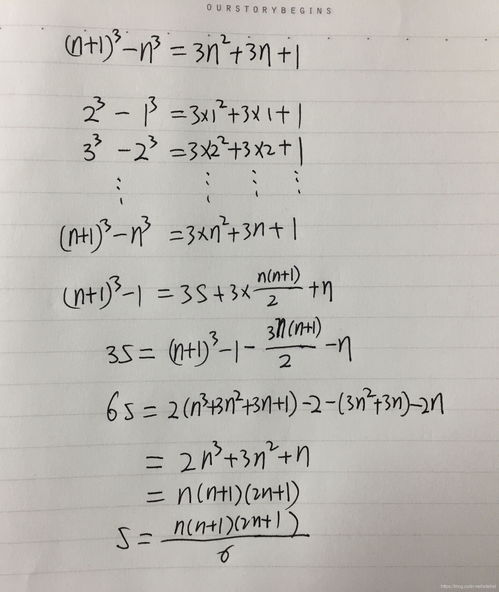 OURSTORYBEGINS
(n+1)³-n³ = 3n²+3n+1
2³ - 1³ = 3×1²+3×1+1
3³ - 2³ = 3×2²+3×2+1
⋮ ⋮ ⋮ ⋮
(n+1)³-n³ = 3×n²+3n+1
(n+1)³-1 = 3S+3×n(n+1)/2+n
3S = (n+1)³-1-3n(n+1)/2-n
6S = 2(n³+3n²+3n+1)-2-(3n²+3n)-2n
= 2n³+3n²+n
= n(n+1)(2n+1)
S = n(n+1)(2n+1)/6